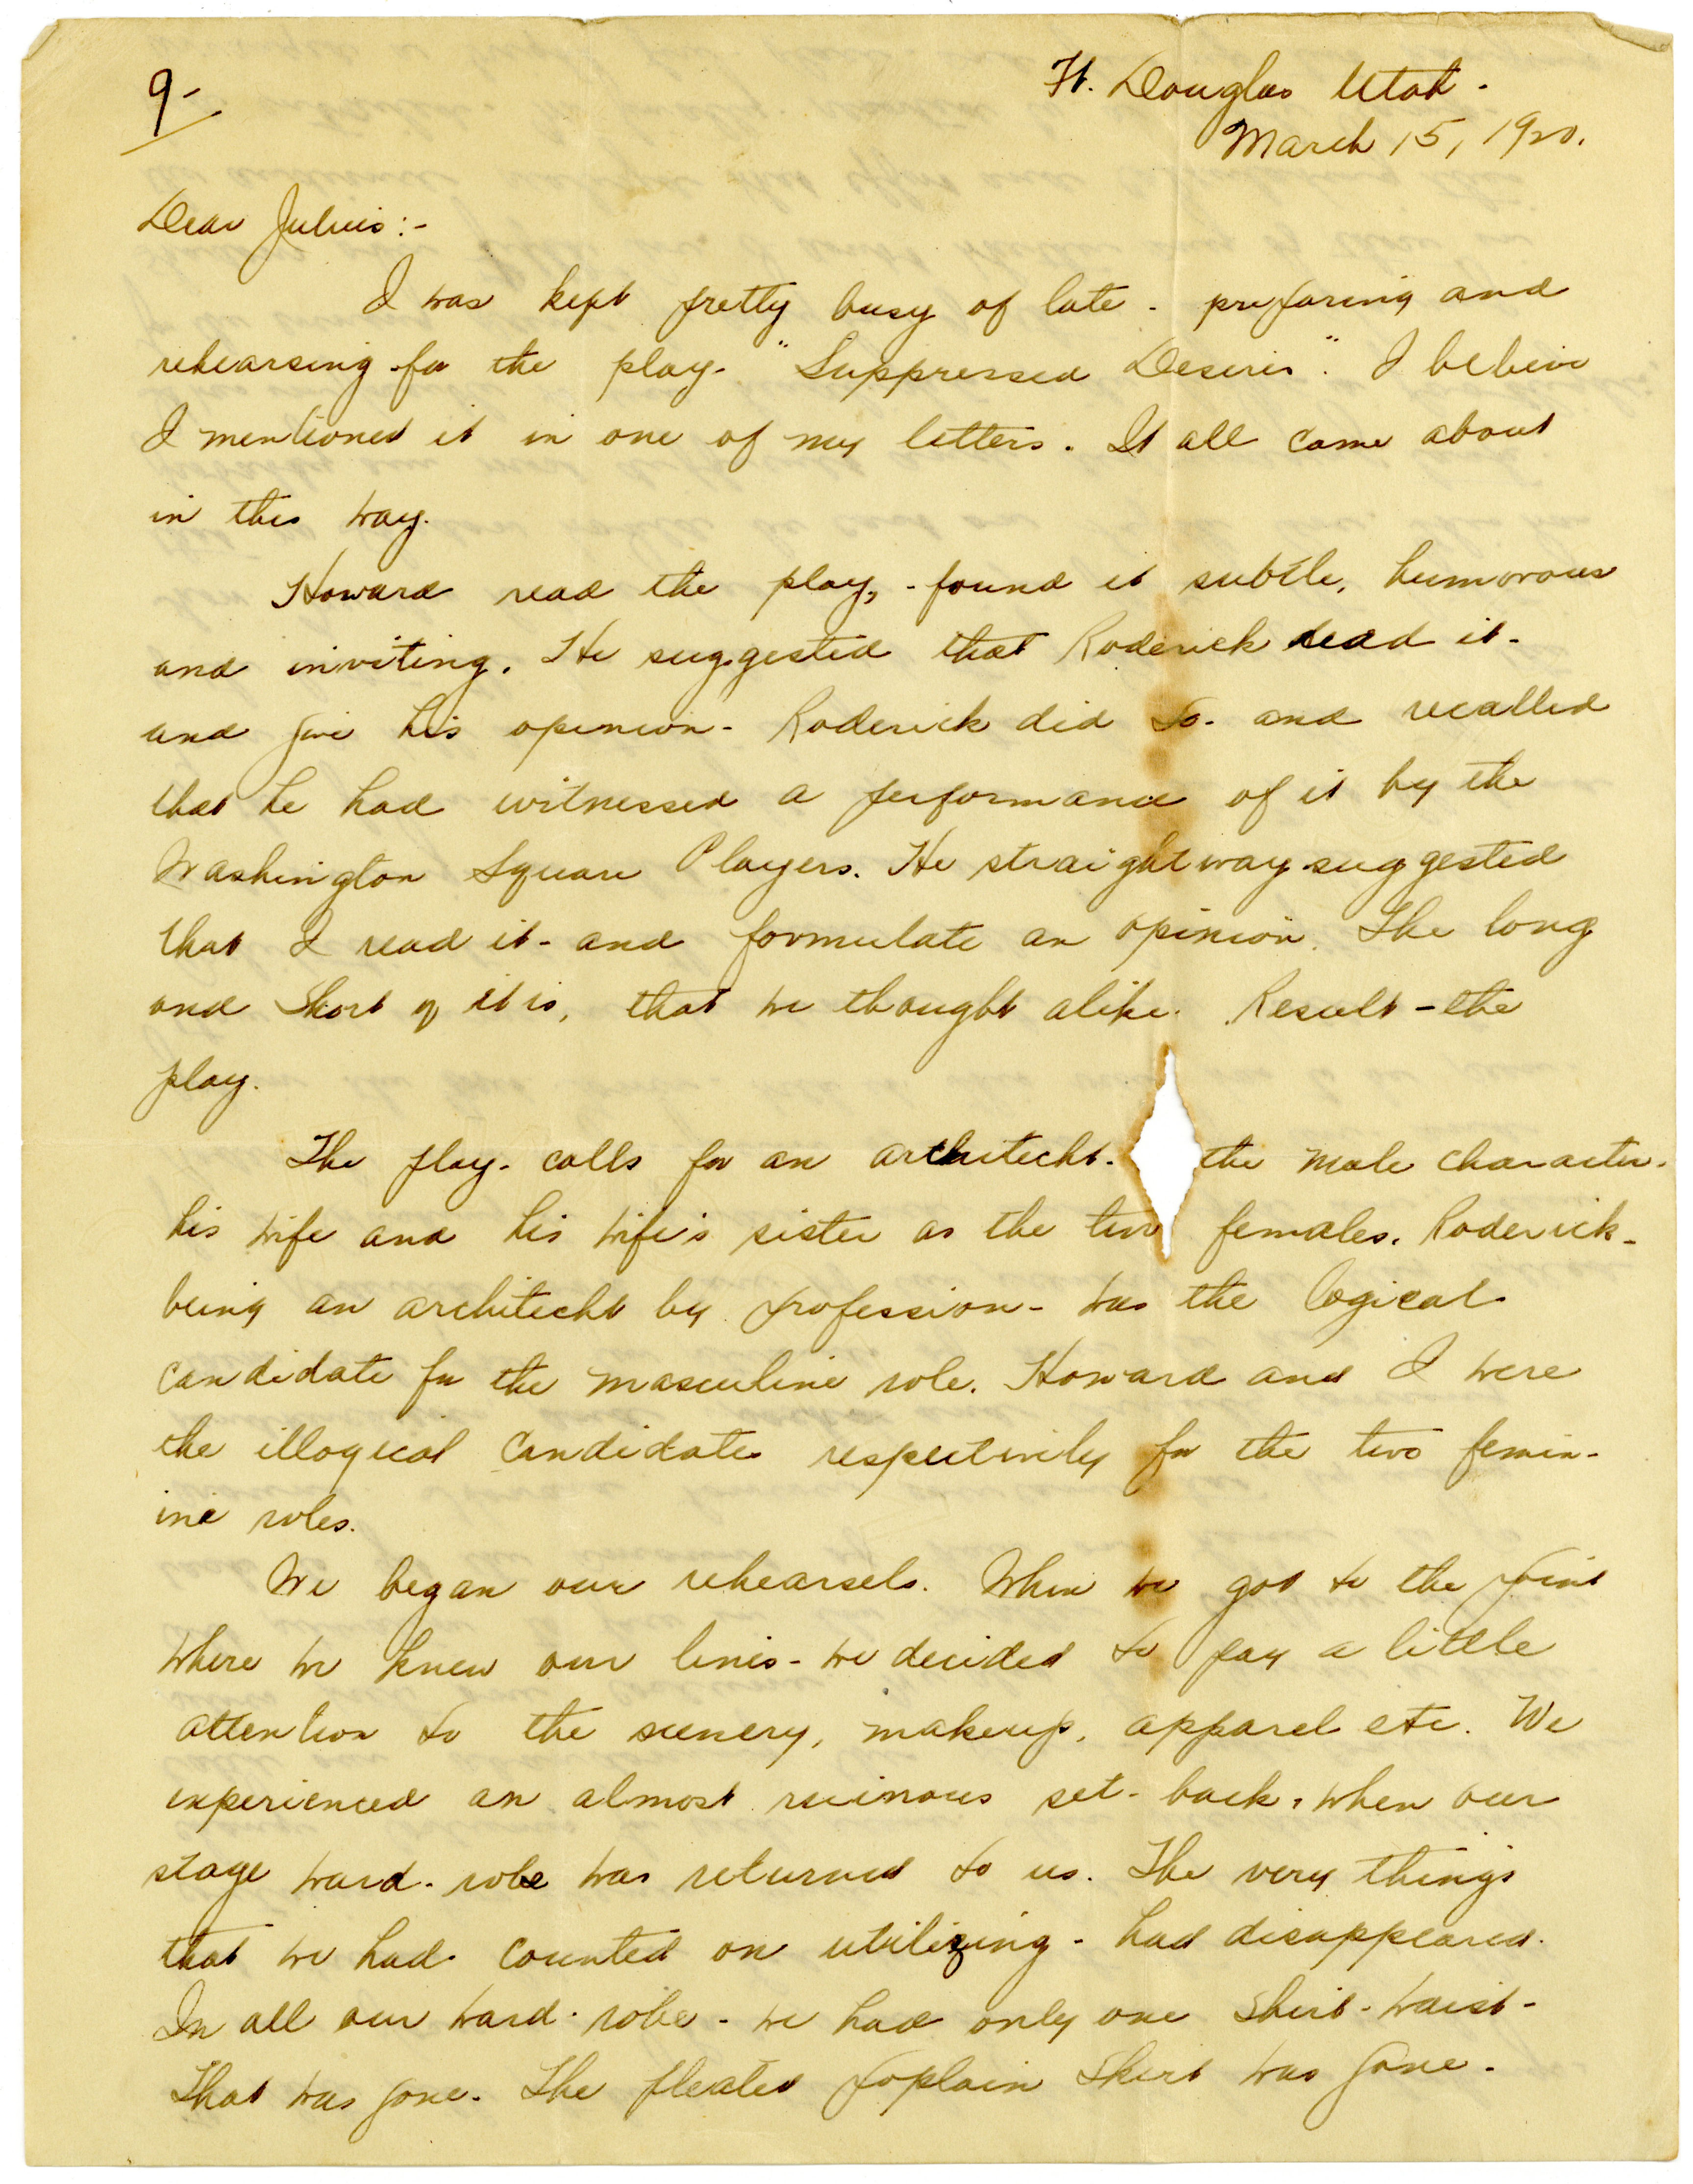 9-
Ft. Douglas Utah.
March 15, 1920.
Dear Julius:-
I was kept pretty busy of late - preparing and
rehearsing for the play - "Suppressed Desires". I believe
I mentioned it in one of my letters. It all came about
in this way.
Howard read the play, - found it subtle, humorous
and inviting. He suggested that Roderick read it -
and give his opinion - Roderick did so - and recalled
that he had witnessed a performance of it by the
Washington Square Players. He straightway suggested
that I read it - and formulate an opinion. The long
and short of it is, that we thought alike. Result - the
play.
The play - calls for an architecht - the male character -
his wife and his wife's sister as the two females. Roderick -
being an architecht by profession - was the logical
candidate for the masculine role. Howard and I were
the illogical candidates respectively for the two femin-
ine roles.
We began our rehearsels. When we got to the point
where we knew our lines - we decided to pay a little
attention to the scenery, makeup, apparel etc. We
experienced an almost ruinous set-back, when our
stage ward-robe was returned to us. The very things
that we had counted on utilizing - had disappeared.
In all our ward-robe - we had only one shirt-waist -
That was gone. The pleated poplain skirt was gone.